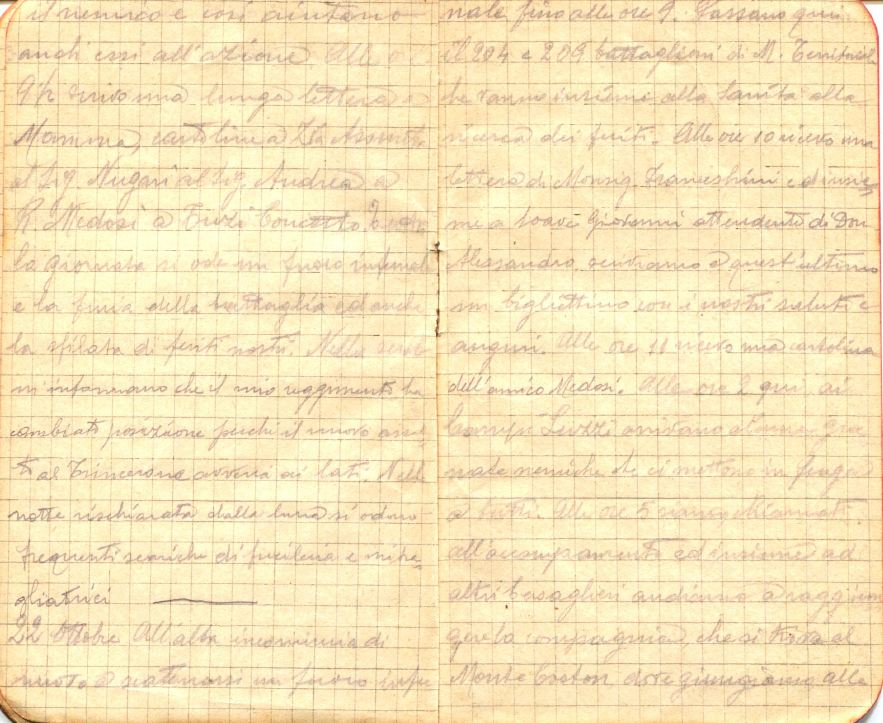 il nemico e così aiutano
anch'essi all'azione Alle ore
9½ scrivo una lunga lettera a
Mamma, cartoline a Zia Assunta
al Sig. Nugari al Sig. Andrea a
R. Medosi a Tuzi Concetto Tutta
la giornata si ode un fuoco infernale
e la furia della battaglia ed anche
la sfilata di feriti nostri. Nella sera
mi informano che il mio reggimento ha
cambiato posizione perchè il nuovo assal-
to al Trincerone avverrà ai lati. Nella
notte rischiarata dalla luna si odono
frequenti scariche di fucileria e mitra-
gliatrici
22 Ottobre All'alba incomincia di
nuovo a scatenarsi un fuoco infer
nale fino alle ore 9. Passano qui
il 204 e 209 battaglioni di M. Territoriale
che vanno insieme alla Sanità alla
ricerca dei feriti. Alle ore 10 ricevo una
lettera di Monsig. Franceschini e d'insie-
me a Soave Giovanni attendente di Don
Alessandro scriviamo a quest'ultimo
un bigliettino con i nostri saluti e
auguri. Alle ore 11 ricevo una cartolina
dell'amico Medosi. Alle ore 2 qui ai
Campi Luzzi arrivano alcune gra-
nate nemiche che ci mettono in fuga
a tutti. Alle ore 5 siamo chiamati
all'accampamento ed insieme ad
altri bersaglieri andiamo a raggiun
gere la compagnia, che si trova al
Monte Coston dove giungiamo alle